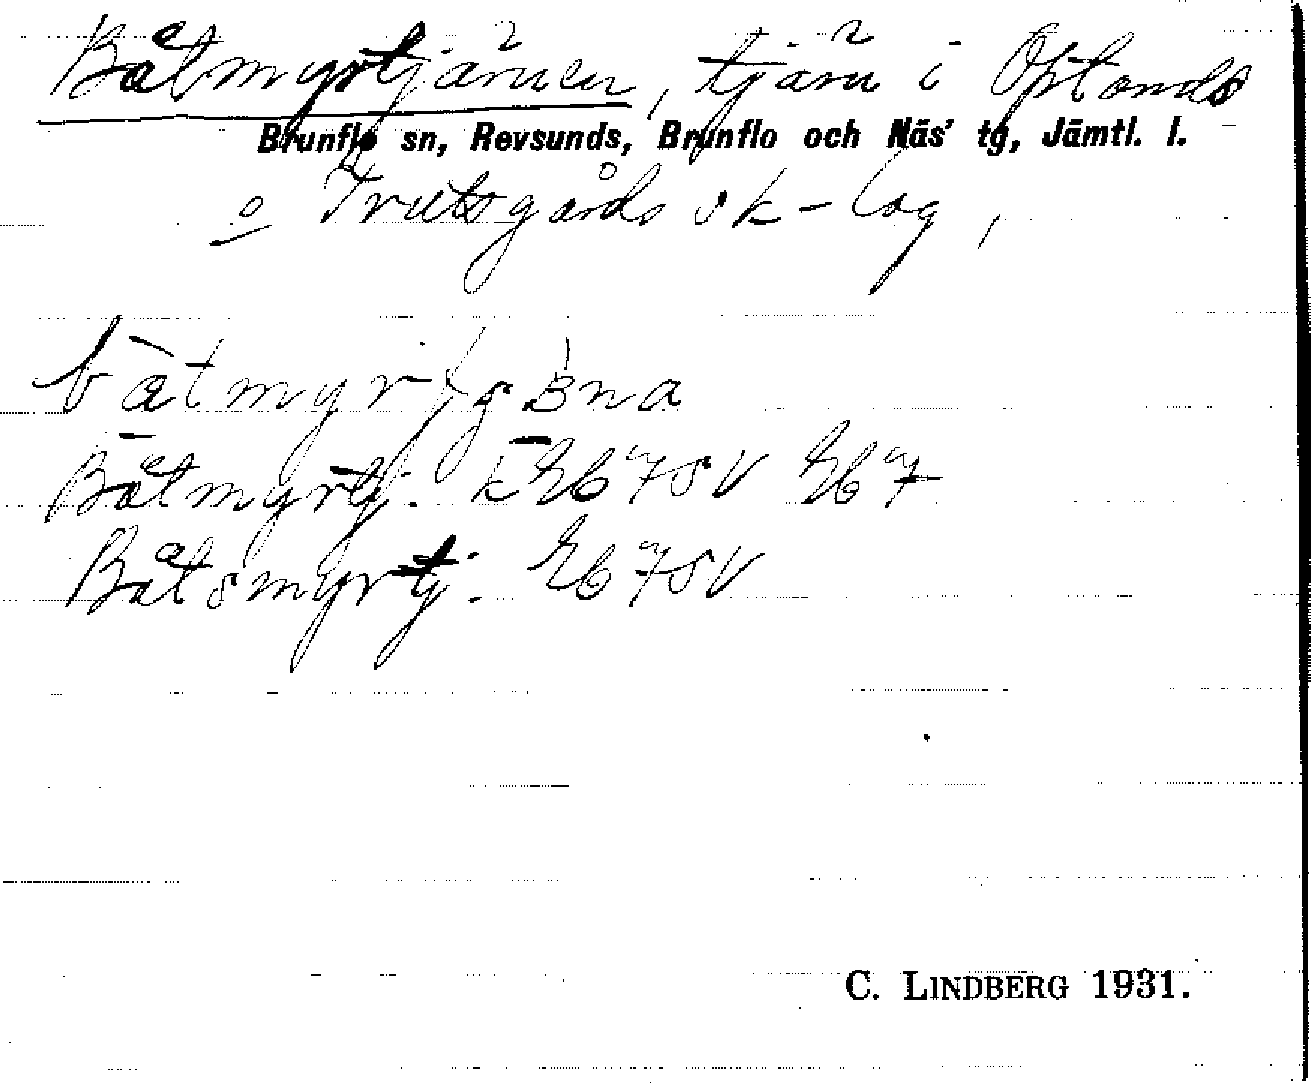 Båtmyrtjärnen, tjärn i Optands
Brunflo sn, Revsunds, Brunflo och Näs' tg, Jämtl. l.
o Trutsgårds sk-lag,
Båtmyrtj. k Eb 7SV Eb 7
Båtsmyrtj. Eb 7SV
C. LINDBERG 1931.